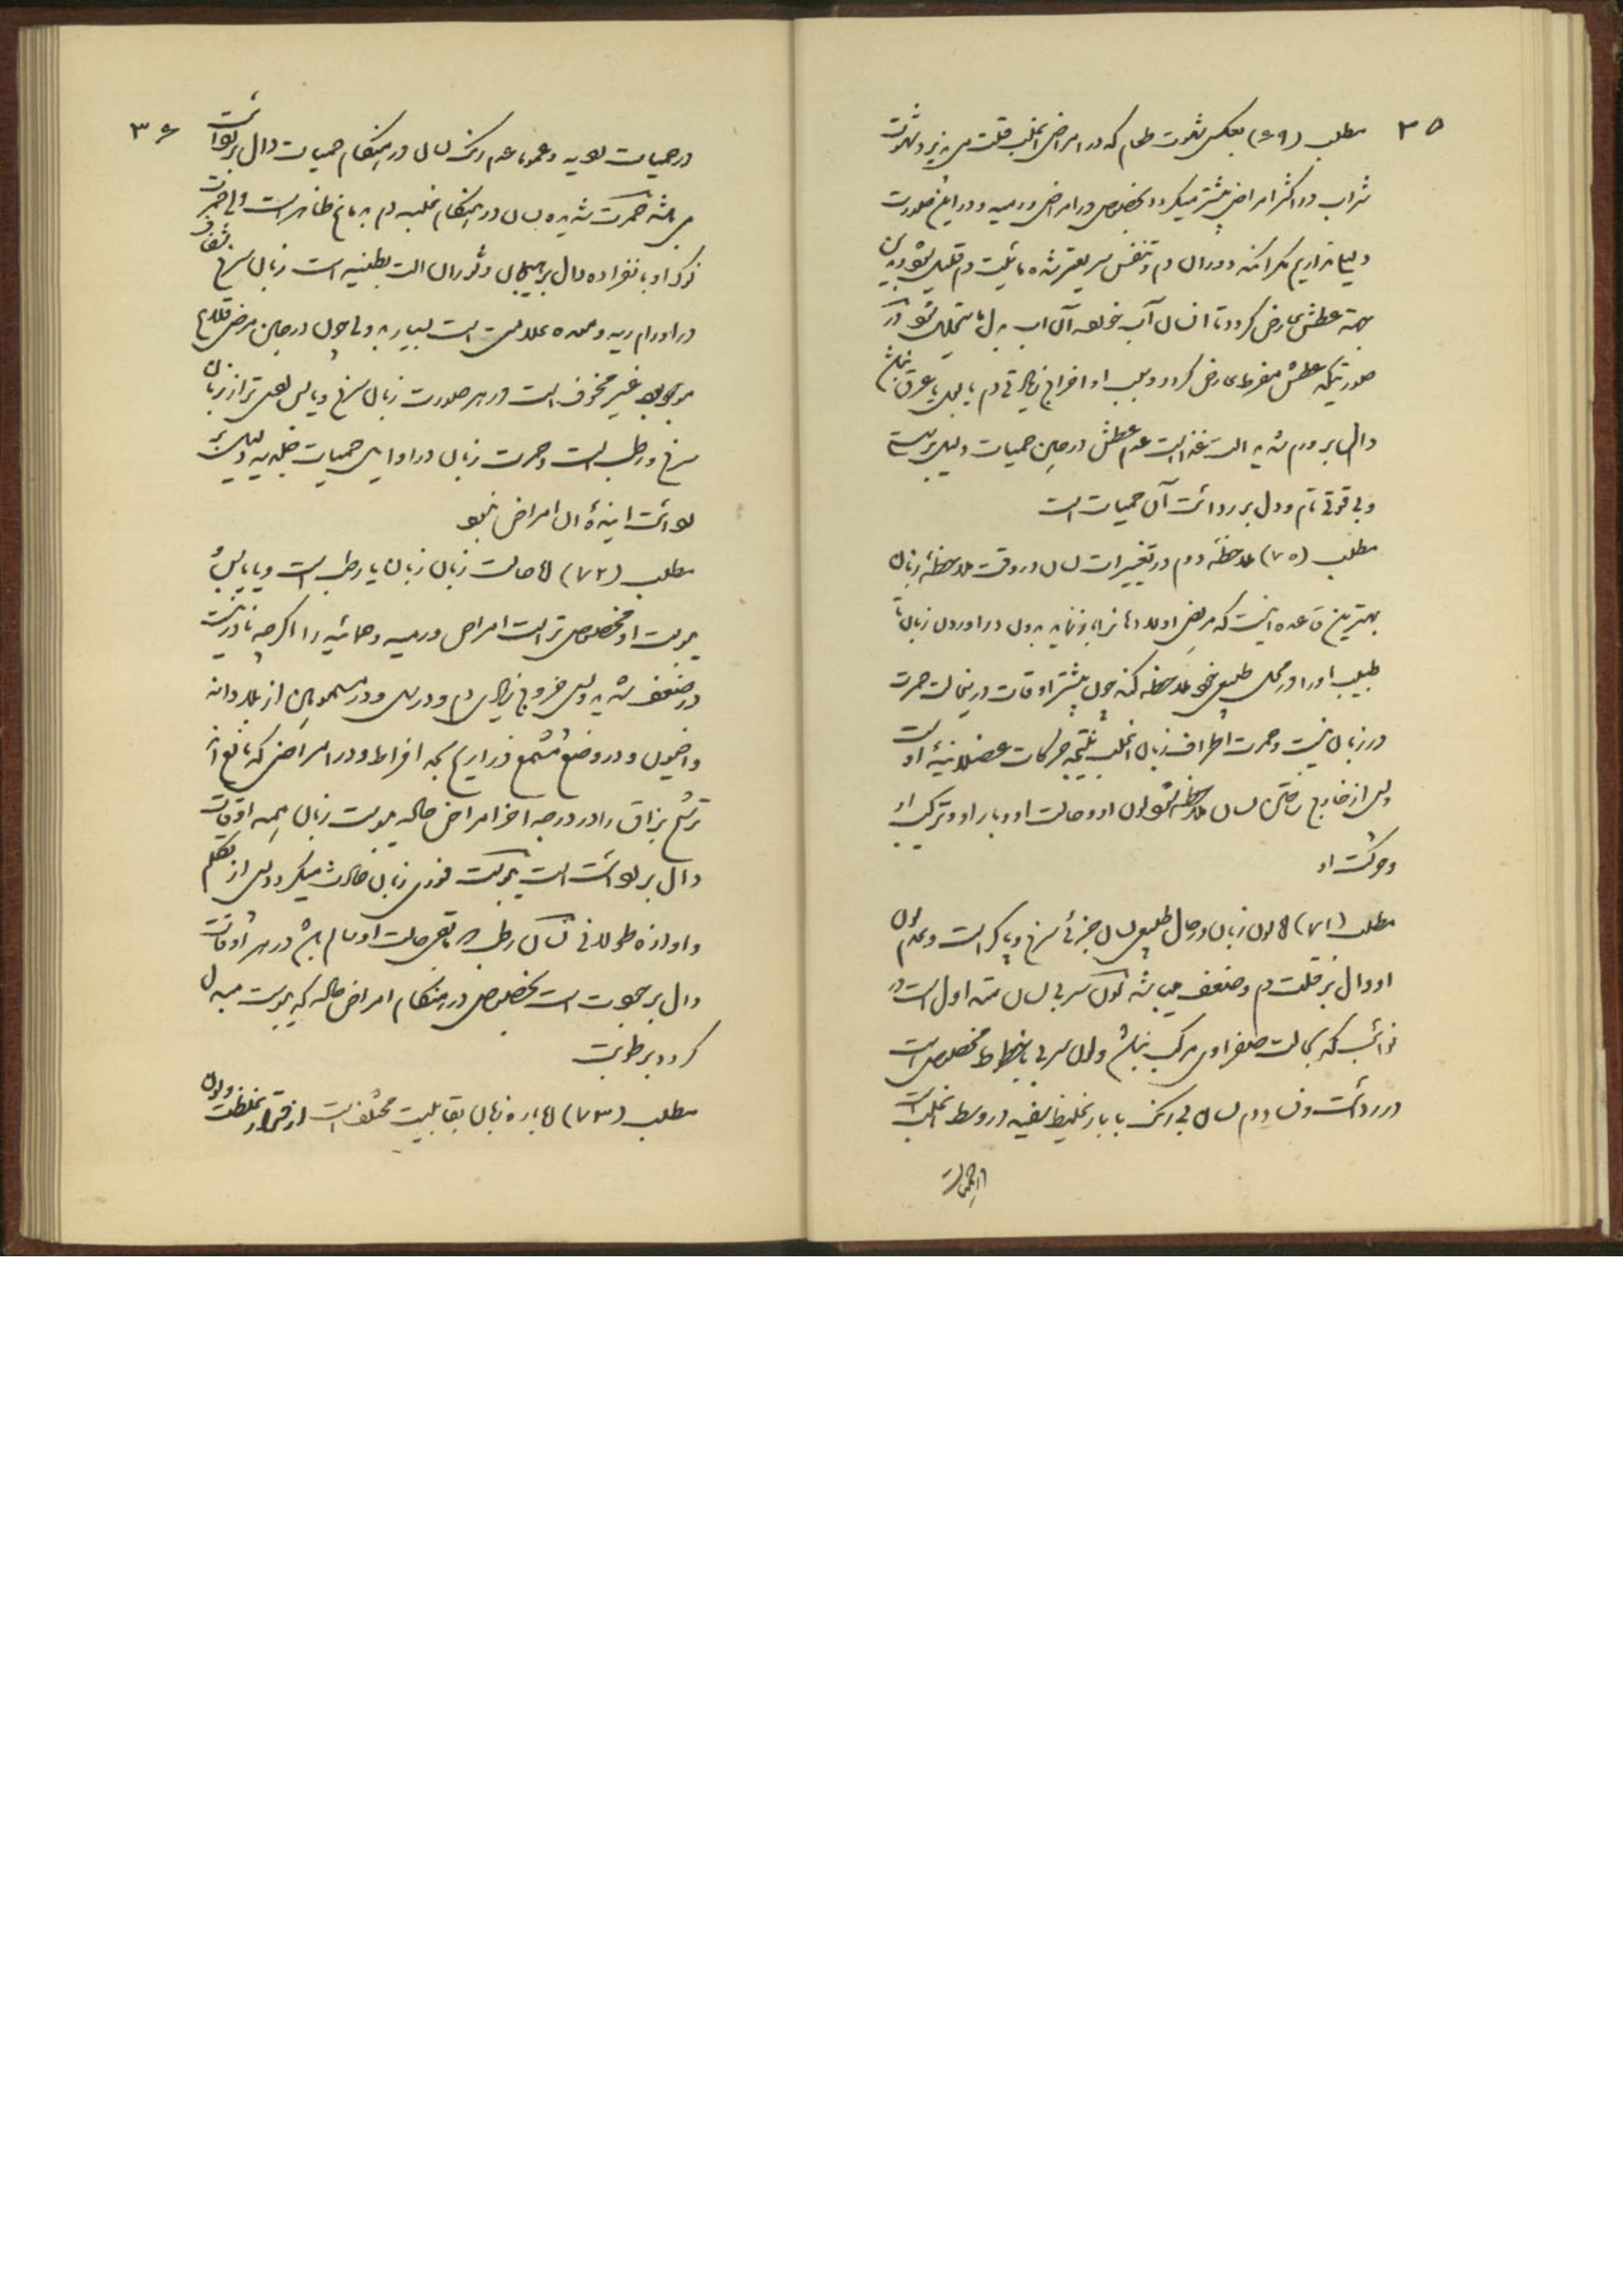 ۳۵
مطلب (۶۹) بعکس شهوت طعام که در امراض اغلب قلت می پذیرد شهوت
شراب در اکثر امراض بیشتر میگردد بخصوص در امراض ورمیه و در این صورت
دلیلی نداریم مگر آنکه دوران دم و تنفس سریعتر شده مائیت دم قلیل شود
بجهة عطش عارض گردد تا انسان آب خورده آن آب بدل ما یتحلل شود در
صورتیکه عطش مفرط عارض گردد و سبب او اخراج زیادتی دم یا بول یا عرق نباشد
دال بر ورم شدید الت غذا است عدم عطش در حین حمیات دلیل بر
و بی قوتی تام و دال بر ردائت آن حمیات است
مطلب (۷۰) ملاحظه دوم در تغییرات لسان در وقت ملاحظه زبان
بهترین قاعده اینست که مریض اولا دهانرا باز نماید بدون در آوردن زبان تا
طبیب او را در محل طبیعی خود ملاحظه کند چون بیشتر اوقات در اینحالت حمرت
در زبان نیست و حمرت اطراف زبان اغلب نتیجه حرکات عضلانیه او است
پس از خارج ساختن لسان ملاحظه شود لون او و حالت او و بار او و ترکیب او
و حرکت او
مطلب (۷۱) لون زبان در حال طبیعی لسان جزئی سرخ و پاک است و عدم لون
او دال بر قلت دم و ضعف میباشد لون سربی لسان مته اول است در
نوائب که بحالت صفراوی مرکب نباشد و لون سربی با خطوط مخصوص است
در ردائت و فساد دم لسان بی رنگ با بار غلیظ سفید در وسط اغلب است
در حمیات
۳۶
در حمیات ردیه و عموما عدم رنگ لسان در هنگام حمیات دال بر ردائت
می باشد حمرت شدیده لسان در هنگام غلبه دم بدماغ ظاهر است ولی حمرت
نوک او بانفراده دال بر هیجان و ثوران الت بطنیه است زبان سرخ شفاف
در اورام ریه و معده علامتی است بسیار بد ولی چون در حین مرض قلاع
موجود بود غیر مخوف است در هر صورت زبان سرخ و یابس ردی تر از زبان
سرخ و رطب است و حمرت زبان در اوایل حمیات جلدیه دلیل بر
ردائت اینده ان امراض نبود
مطلب (۷۲) حالت زبان زبان یا رطب است و یا یابس
یبوست او مخصوص تر است امراض ورمیه و حمائیه را اگرچه نادر نیست
در ضعف شدید پس خروج زیادی دم و در سل و در مسمومین از بلادانه
و افیون و در وضع مشمع ذراریح بحد افراط و در امراضی که مانع اند
ترشح بزاق را در درجه اخر امراض حاده یبوست زبان همه اوقات
دال بر ردائت است یبوست فوری زبان حادث میگردد پس از تکلم
و اواز طولانی لسان رطب که باقی حالت او سالم باشد در هر اوقات
دال بر خوبی است بخصوص در هنگام امراض حاده که یبوست مبدل
گردد برطوبت
مطلب (۷۳) بار زبان بقابلیت مختلف است از قرار غلظت و لون